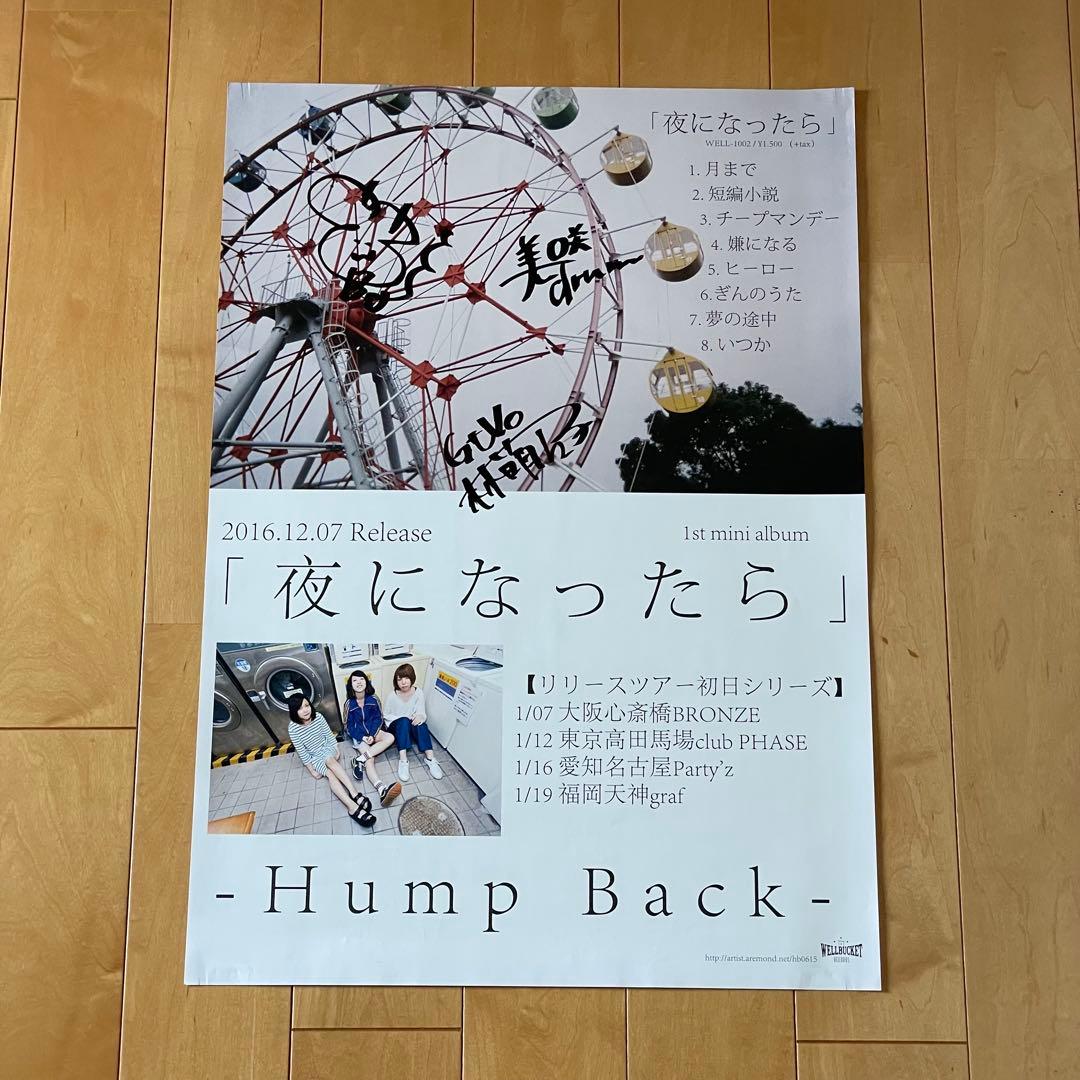 「夜になったら」
WELL-1002 / ¥1.500 （+tax）
1. 月まで
2. 短編小説
3. チープマンデー
4. 嫌になる
5. ヒーロー
6.ぎんのうた
7. 夢の途中
8. いつか
美咲
drum
2016.12.07 Release
1st mini album
「夜になったら」
【リリースツアー初日シリーズ】
1/07 大阪心斎橋BRONZE
1/12 東京高田馬場club PHASE
1/16 愛知名古屋Party'z
1/19 福岡天神graf
- Hump Back -
http://artist.aremond.net/hb0615
WELLBUCKET
RECORDS